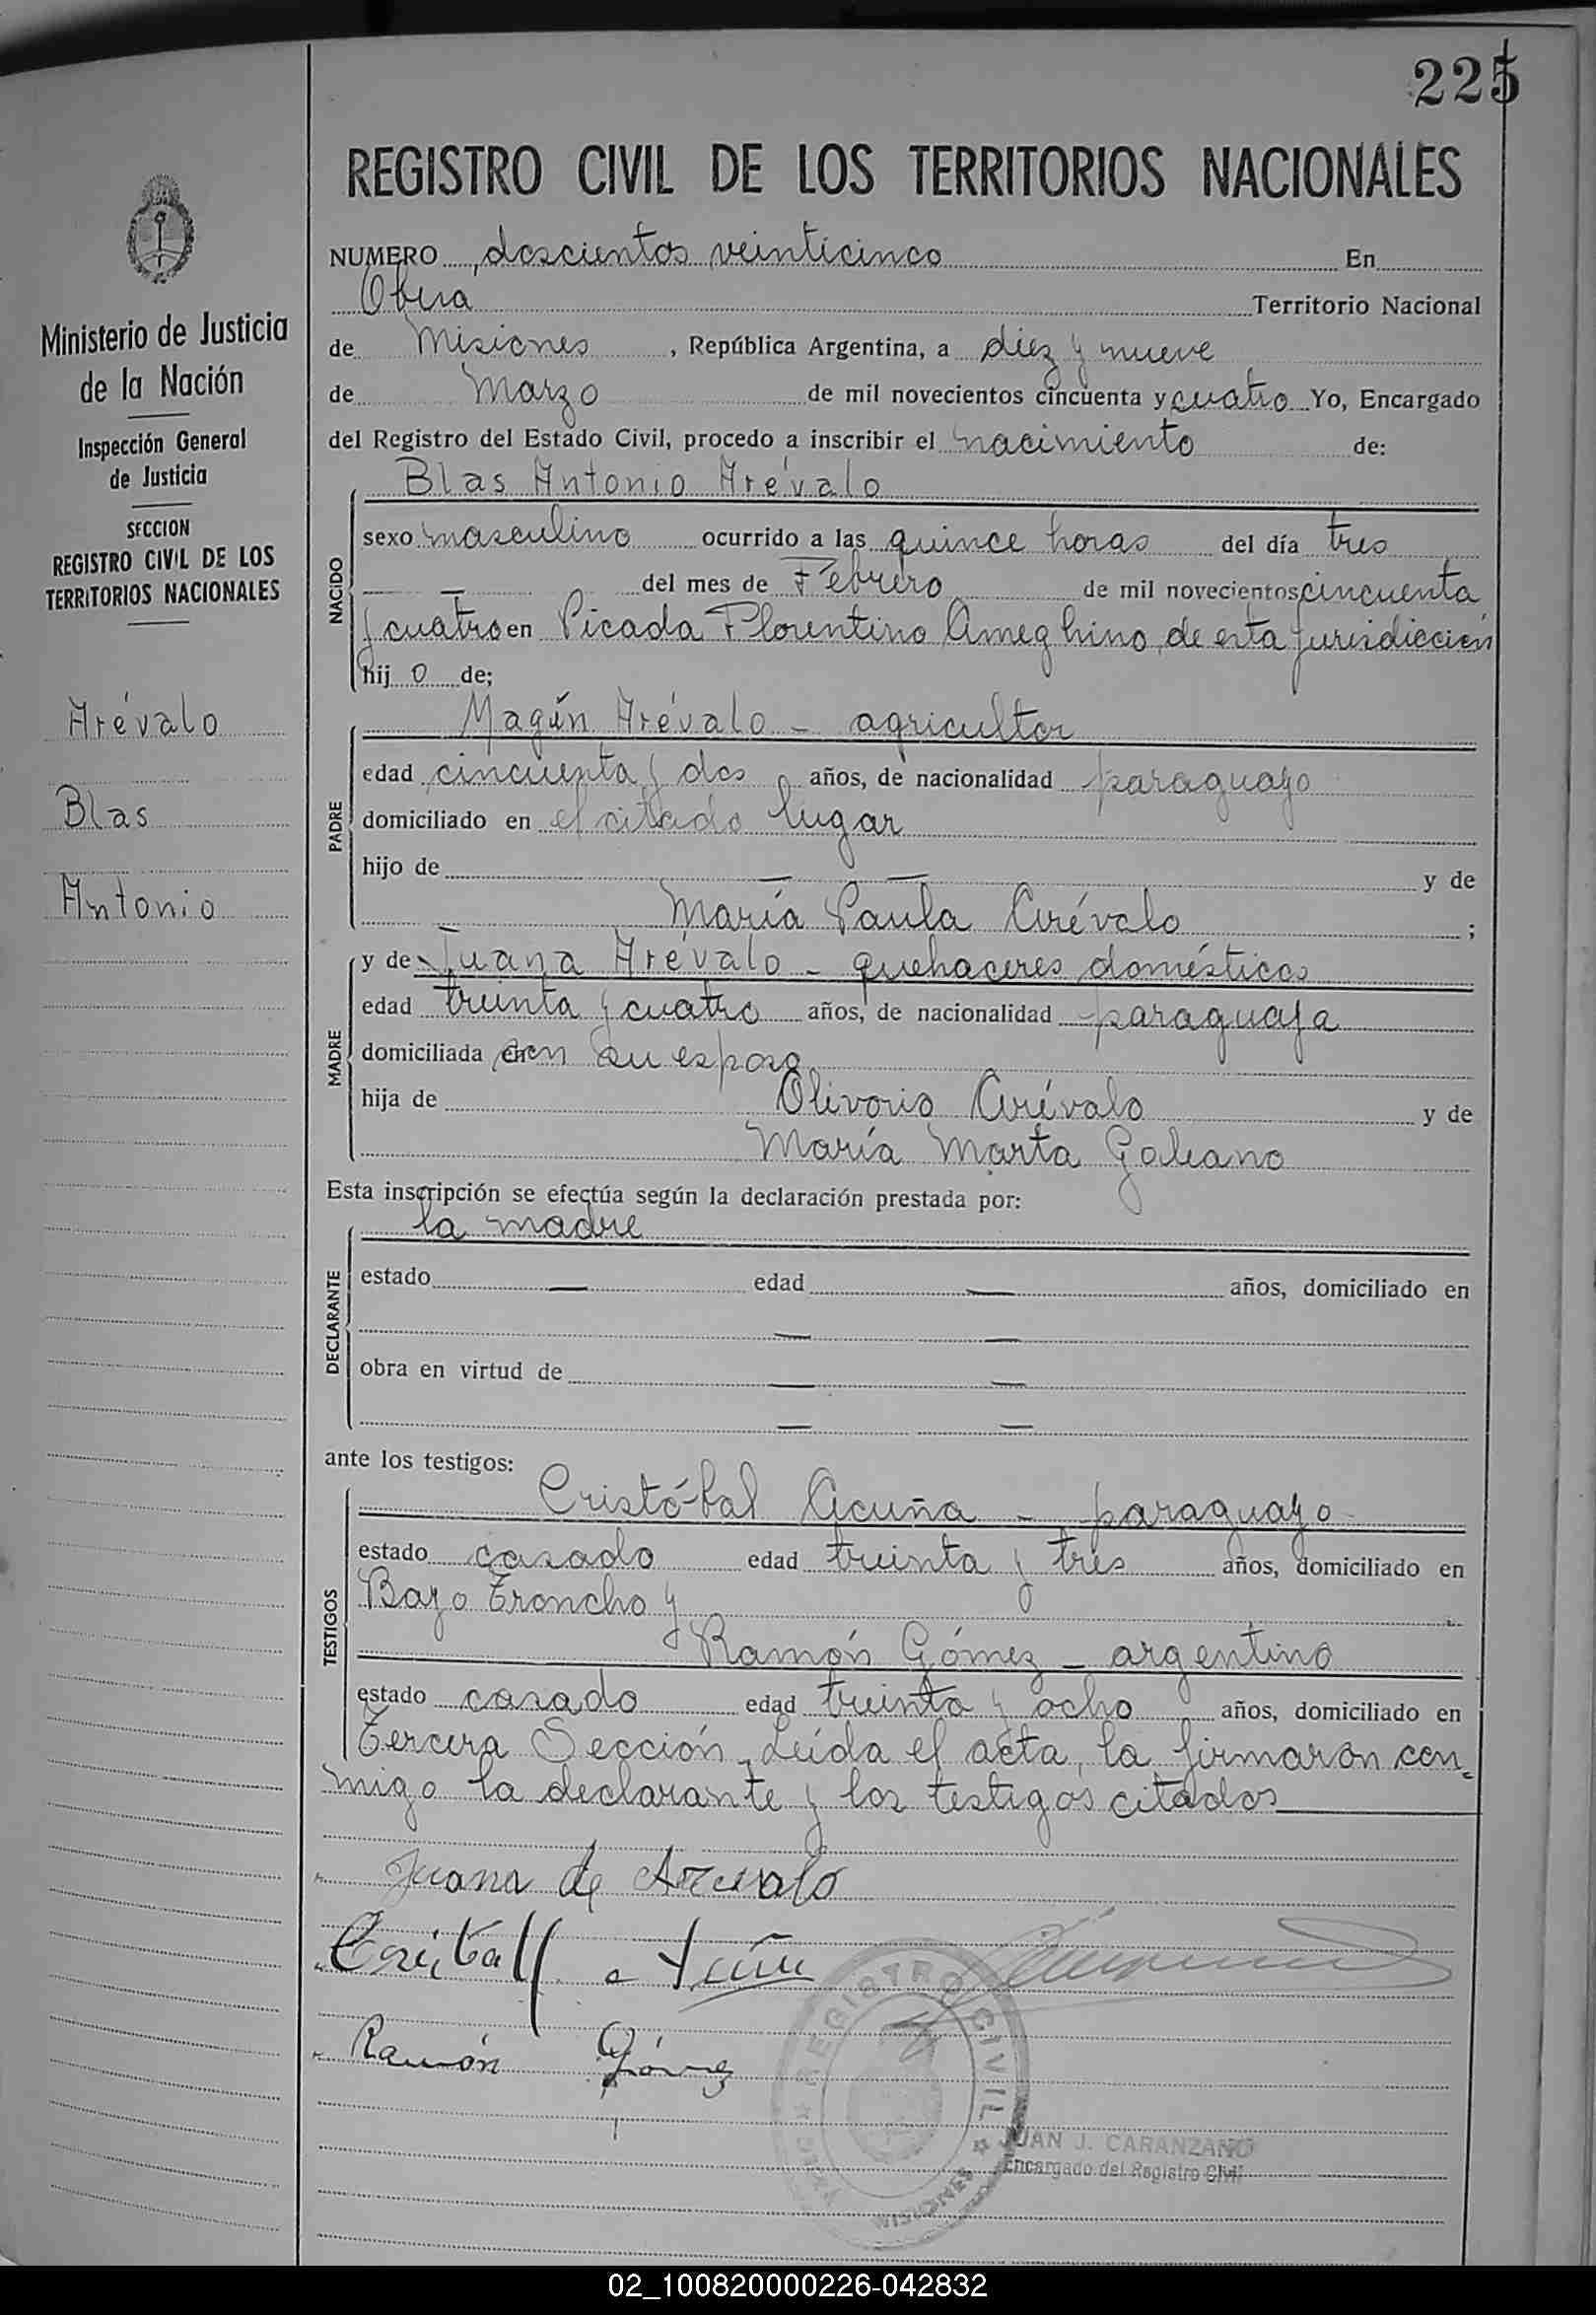 225
REGISTRO CIVIL DE LOS TERRITORIOS NACIONALES
Ministerio de Justicia
de la Nación
Inspección General
de Justicia
SECCION
REGISTRO CIVIL DE LOS
TERRITORIOS NACIONALES
Arévalo
Blas
Antonio
NUMERO doscientos veinticinco En
Oberá Territorio Nacional
de Misiones, República Argentina, a diez y nueve
de Marzo de mil novecientos cincuenta y cuatro Yo, Encargado
del Registro del Estado Civil, procedo a inscribir el nacimiento de:
NACIDO
Blas Antonio Arévalo
sexo masculino ocurrido a las quince horas del día tres
— del mes de Febrero de mil novecientos cincuenta
y cuatro en Picada Florentino Ameghino, de esta jurisdicción
hijo de;
PADRE
Magín Arévalo - agricultor
edad cincuenta y dos años, de nacionalidad paraguayo
domiciliado en el citado lugar
hijo de — — y de
María Paula Arévalo ;
MADRE
y de Juana Arévalo - quehaceres domésticos
edad treinta y cuatro años, de nacionalidad paraguaya
domiciliada con su esposo
hija de Olivorio Arévalo y de
María Marta Galeano
Esta inscripción se efectúa según la declaración prestada por:
DECLARANTE
la madre
estado — edad — años, domiciliado en
— —
obra en virtud de — —
— —
ante los testigos:
TESTIGOS
Cristóbal Acuña - paraguayo
estado casado edad treinta y tres años, domiciliado en
Bayo Troncho y
Ramón Gómez - argentino
estado casado edad treinta y ocho años, domiciliado en
Tercera Sección. Leída el acta, la firmaron con-
migo la declarante y los testigos citados
Juana de Arevalo
Ramón Gómez
REGISTRO CIVIL
MISIONES
JUAN J. CARANZANO
Encargado del Registro Civil
02_100820000226-042832